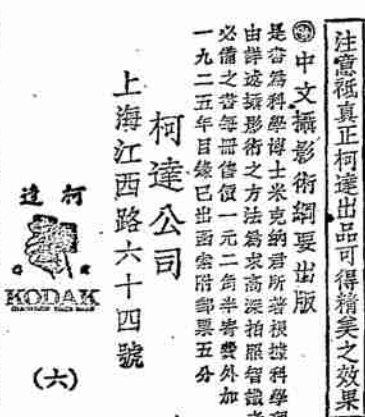 注意祇真正柯達出品可得精美之效果
中文攝影術綱要出版
是書爲科學博士米克納君所著根據科學
由詳述攝影術之方法爲求高深拍照智識
必備之書每冊售價一元二角半寄費外加
一九二五年目錄已出函索附郵票五分
柯達公司
上海江西路六十四號
柯達
KODAK
(六)